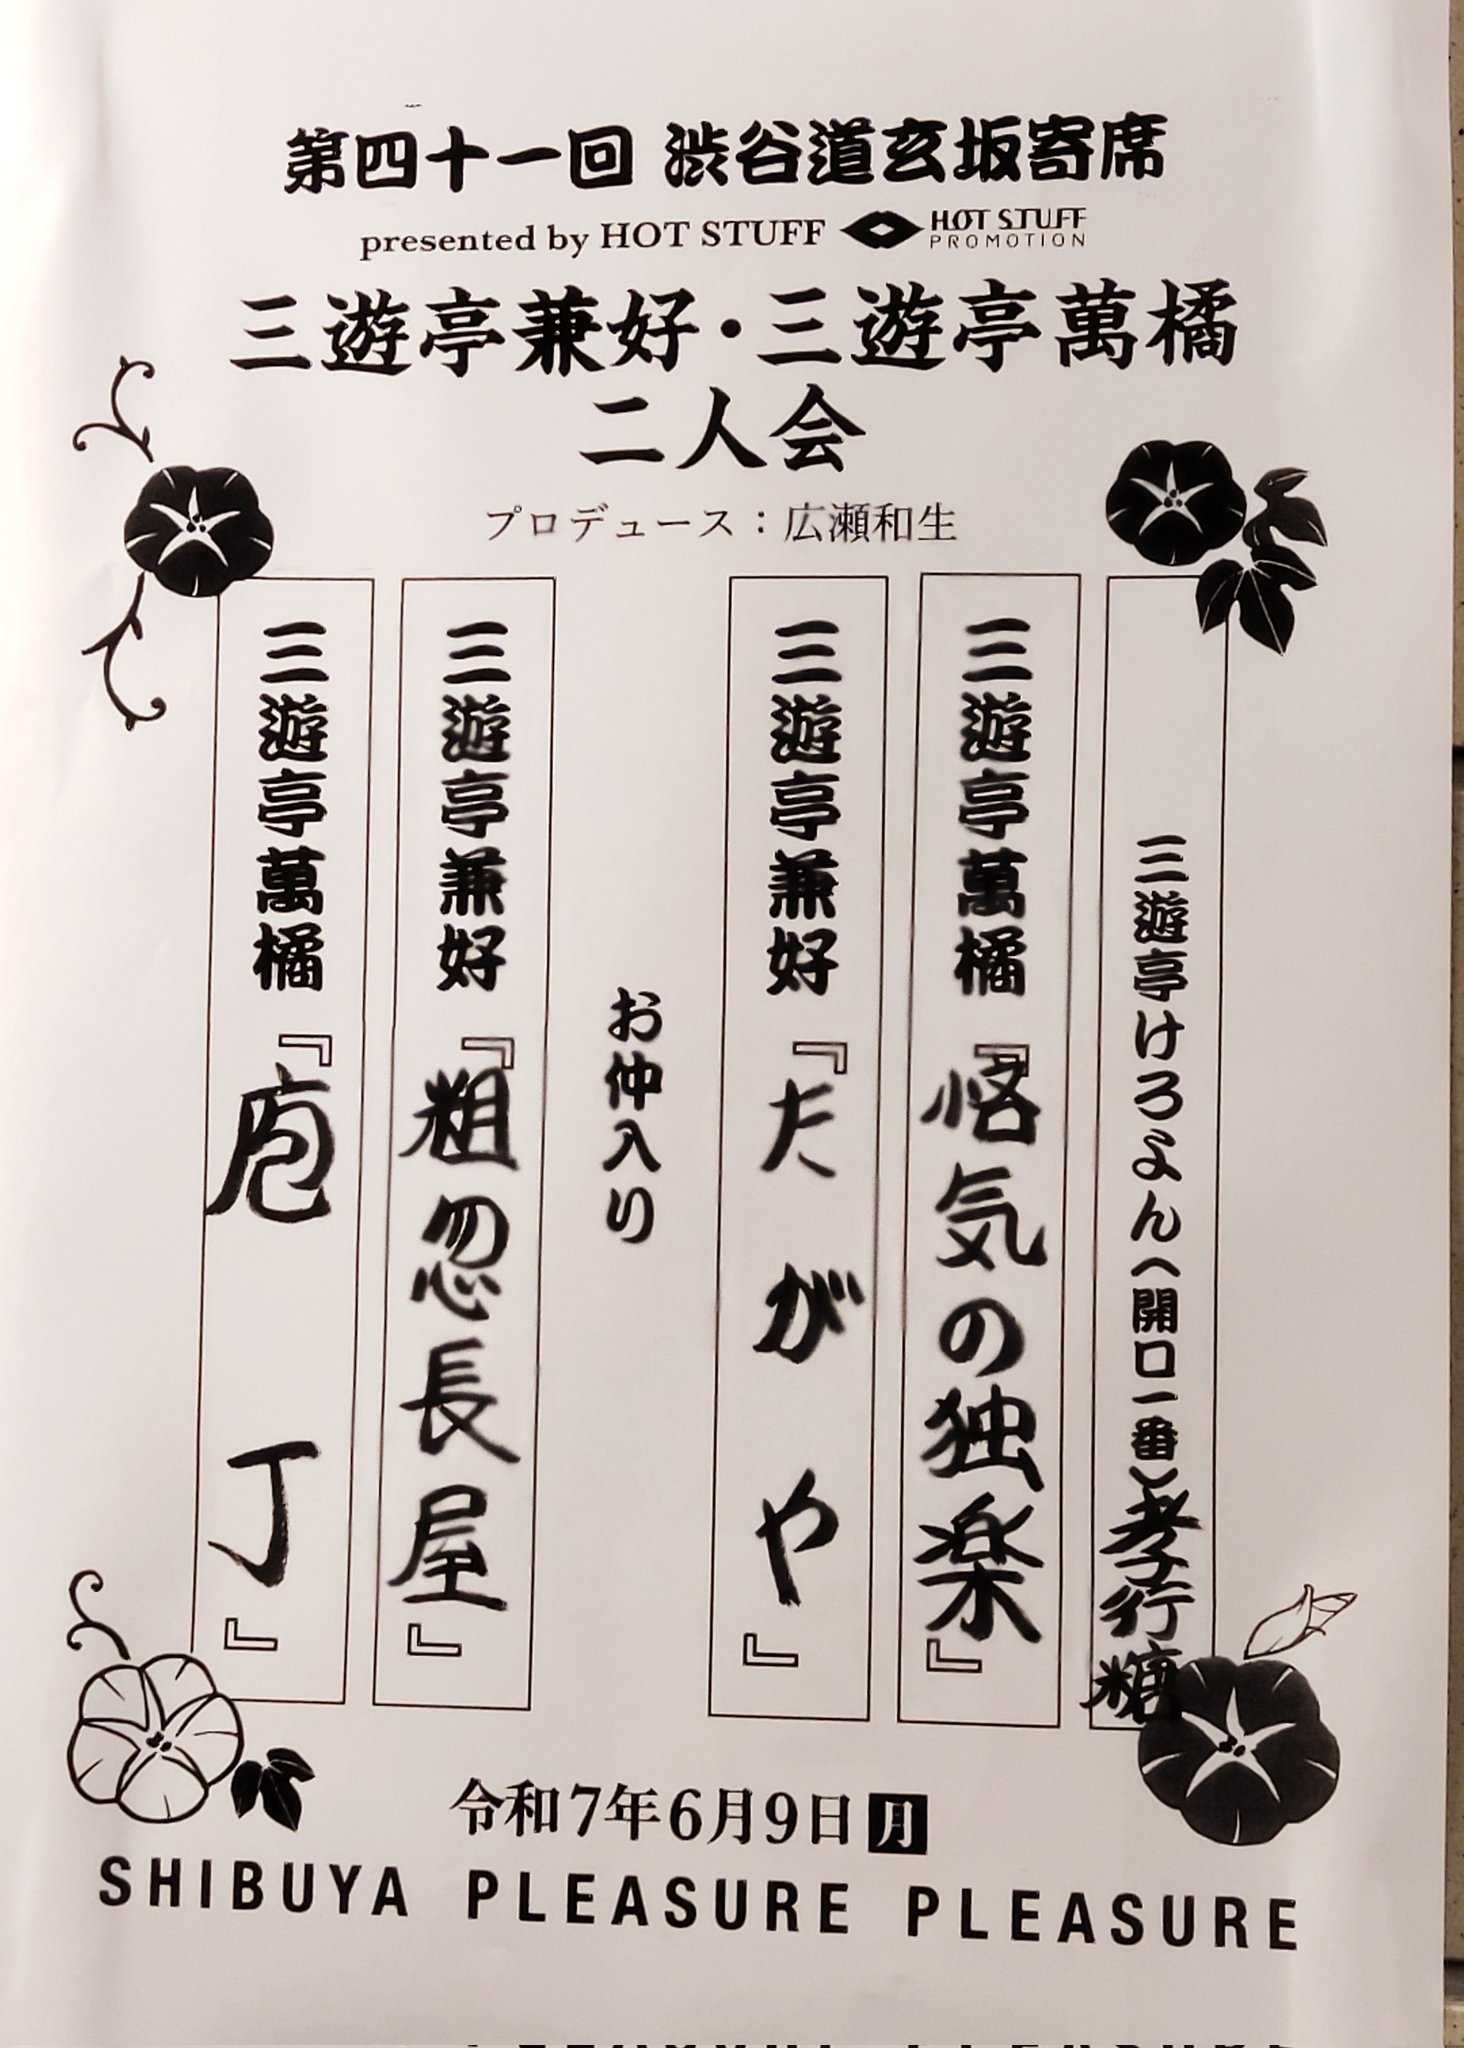 第四十一回 渋谷道玄坂寄席
presented by HOT STUFF HOT STUFF PROMOTION
三遊亭兼好・三遊亭萬橘
二人会
プロデュース：広瀬和生
三遊亭けろよん（開口一番）孝行糖
三遊亭萬橘『悋気の独楽』
三遊亭兼好『たがや』
お仲入り
三遊亭兼好『粗忽長屋』
三遊亭萬橘『庖丁』
令和7年6月9日 月
SHIBUYA PLEASURE PLEASURE